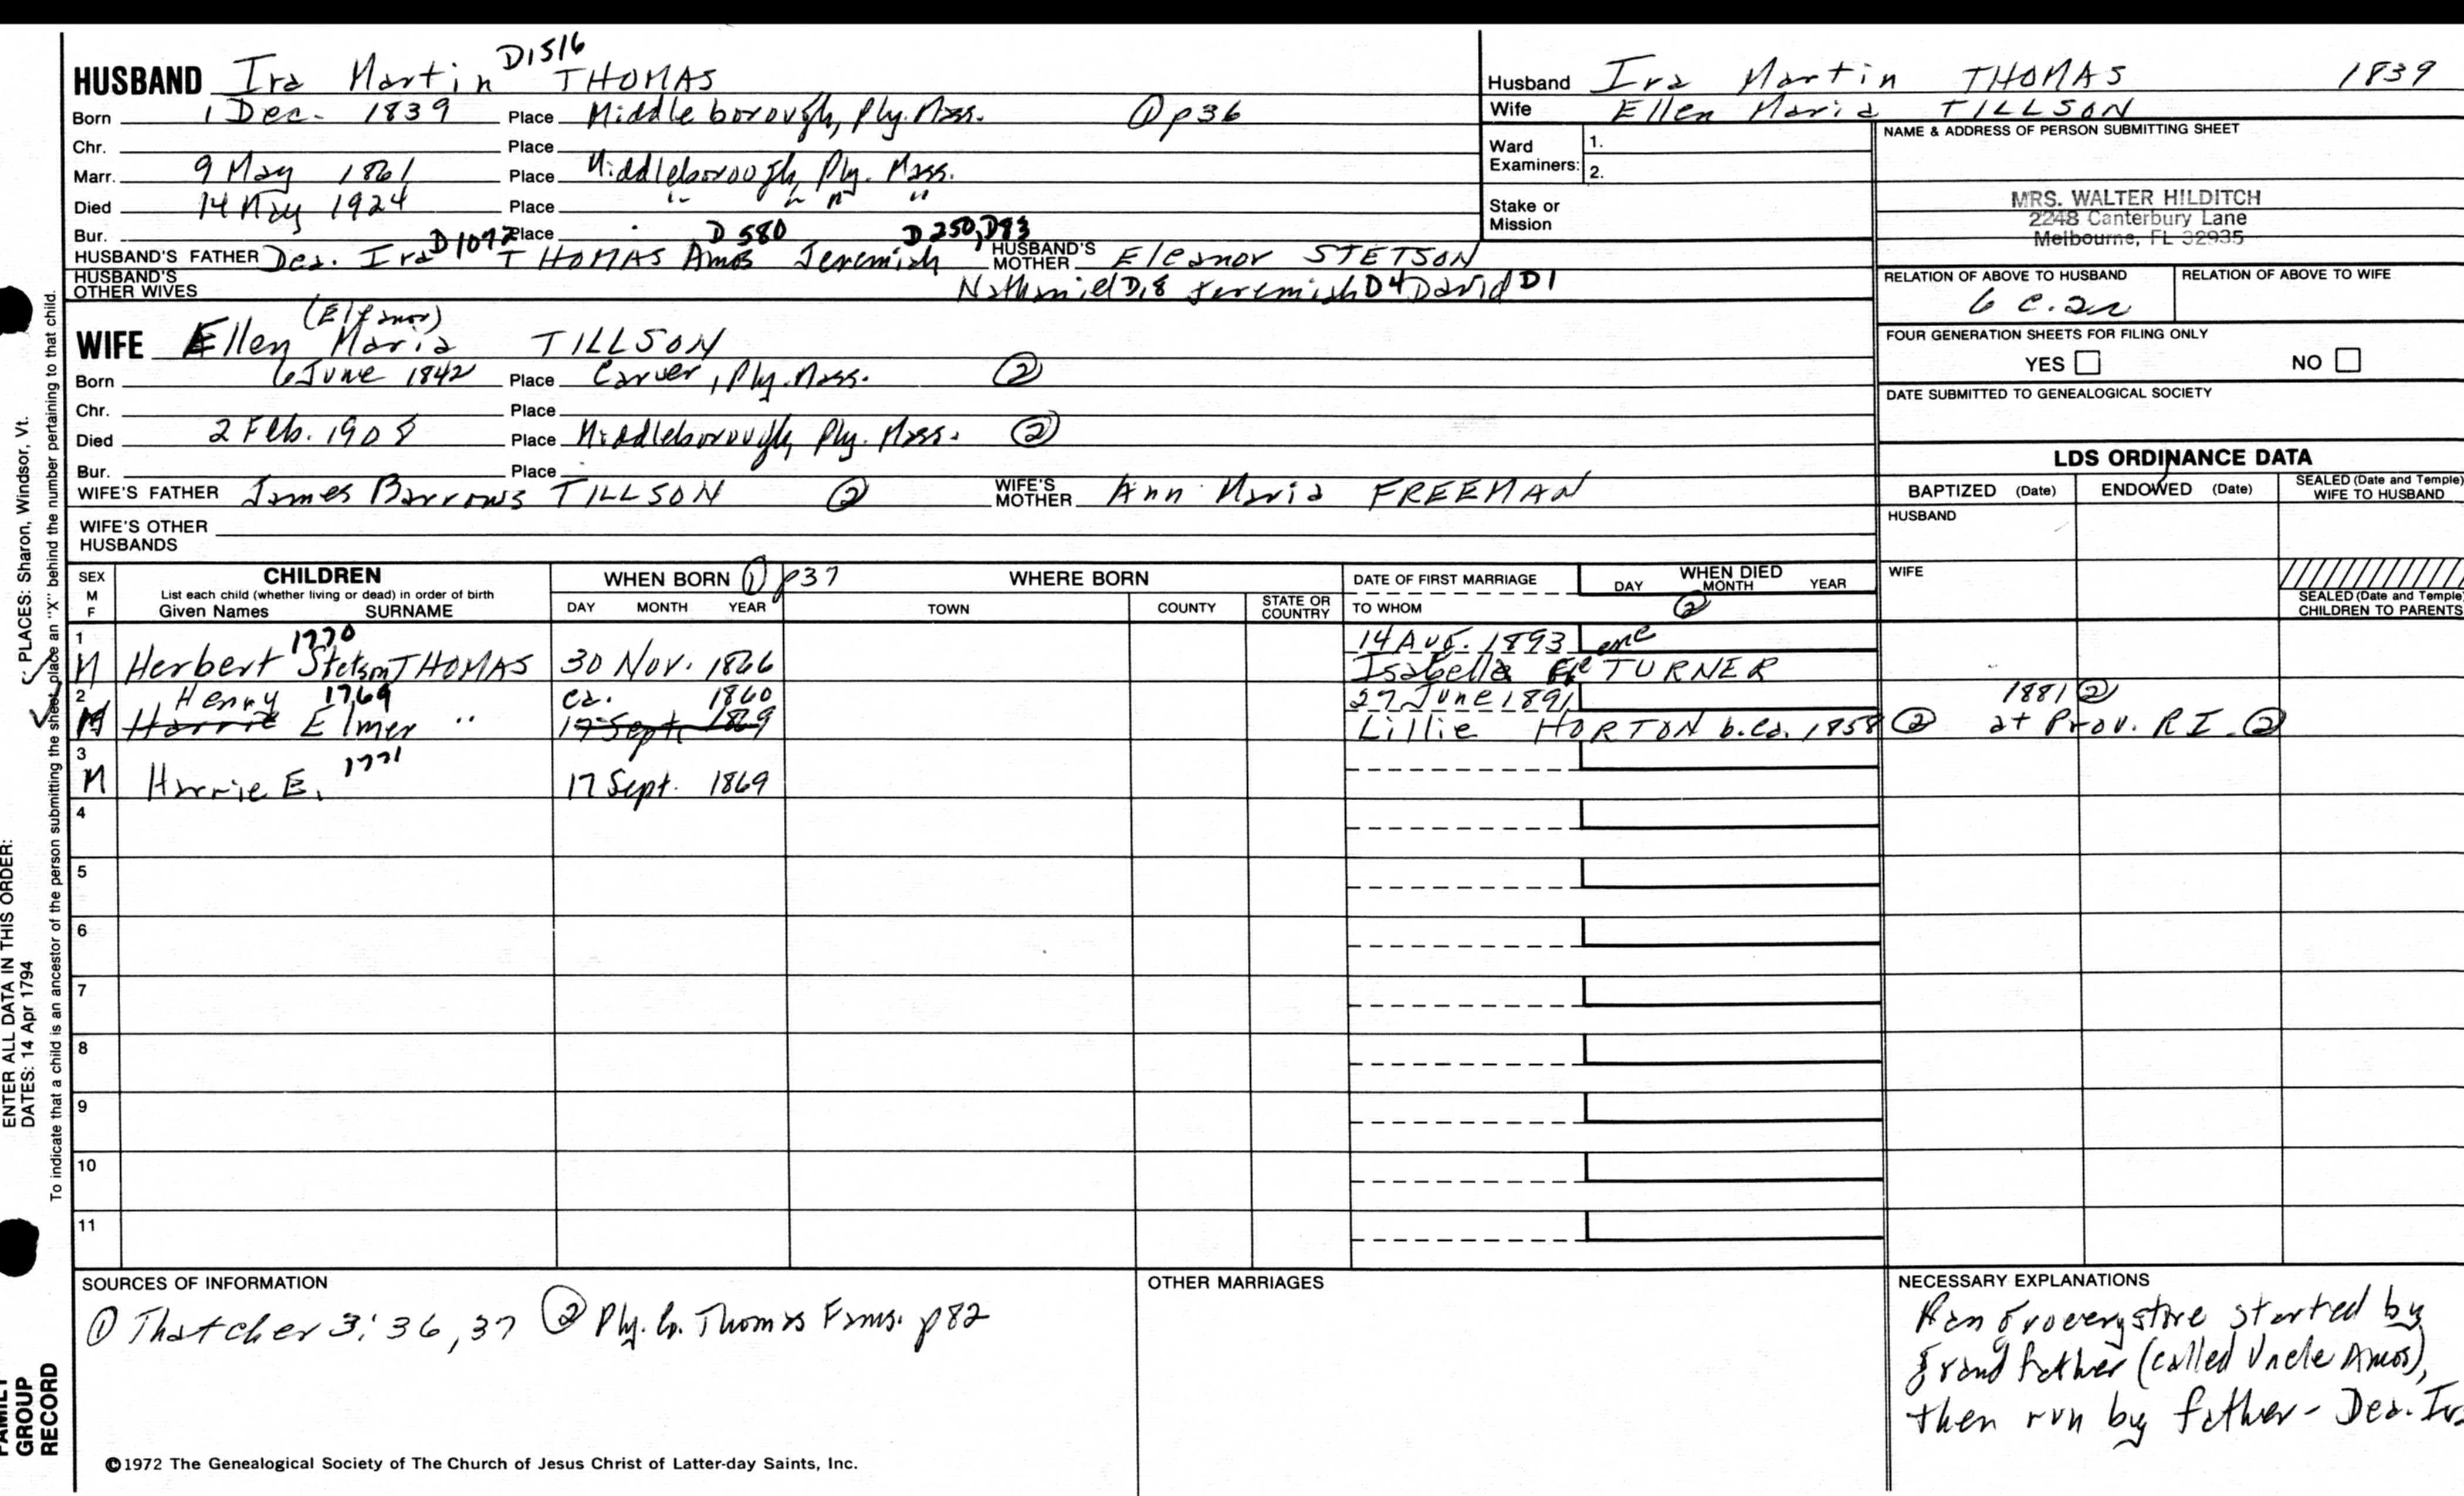 D1516
HUSBAND Ira Martin THOMAS
Born 1 Dec. 1839 Place Middleborough, Ply. Mass. ① p36
Chr. Place
Marr. 9 May 1861 Place Middleborough, Ply. Mass.
Died 14 May 1924 Place " " " "
Bur. Place D 580 D250, D93
HUSBAND'S FATHER Dea. Ira D1072 THOMAS Amos Jeremiah HUSBAND'S MOTHER Eleanor STETSON
HUSBAND'S OTHER WIVES Nathaniel D18 Jeremiah D4 David D1
(Eleanor)
WIFE Ellen Maria TILLSON
Born 6 June 1842 Place Carver, Ply. Mass. ②
Chr. Place
Died 2 Feb. 1908 Place Middleborough, Ply. Mass. ②
Bur. Place
WIFE'S FATHER James Barrows TILLSON ② WIFE'S MOTHER Ann Maria FREEMAN
WIFE'S OTHER HUSBANDS
Husband Ira Martin THOMAS 1839
Wife Ellen Maria TILLSON
Ward Examiners: 1.
2.
Stake or Mission
NAME & ADDRESS OF PERSON SUBMITTING SHEET
MRS. WALTER HILDITCH
2248 Canterbury Lane
Melbourne, FL 32935
RELATION OF ABOVE TO HUSBAND RELATION OF ABOVE TO WIFE
6 c. 2r
FOUR GENERATION SHEETS FOR FILING ONLY
YES NO
DATE SUBMITTED TO GENEALOGICAL SOCIETY
LDS ORDINANCE DATA
BAPTIZED (Date) ENDOWED (Date) SEALED (Date and Temple) WIFE TO HUSBAND
HUSBAND
WIFE
SEALED (Date and Temple) CHILDREN TO PARENTS
SEX M F CHILDREN WHEN BORN ① p37 WHERE BORN DATE OF FIRST MARRIAGE WHEN DIED
List each child (whether living or dead) in order of birth DAY MONTH YEAR
Given Names SURNAME DAY MONTH YEAR TOWN COUNTY STATE OR COUNTRY TO WHOM ②
1 1770 14 Aug. 1893
M Herbert Stetson THOMAS 30 Nov. 1866 Isabella TURNER
2 Henry 1769 ca. 1860 27 June 1891 1881 ②
M Harrie Elmer " 17 Sept. 1869 Lillie HORTON b. ca. 1858 ② at Prov. R I. ②
3 1771
M Harrie E. 17 Sept. 1869
4
5
6
7
8
9
10
11
SOURCES OF INFORMATION
① Thatcher 3:36,37 ② Ply. Co. Thomas Fams. p82
OTHER MARRIAGES
NECESSARY EXPLANATIONS
Ran grocery store started by
grandfather (called Uncle Amos),
then run by father - Dea. Ira
©1972 The Genealogical Society of The Church of Jesus Christ of Latter-day Saints, Inc.
PLACES: Sharon, Windsor, Vt.
To indicate that a child is an ancestor of the person submitting the sheet, place an "X" behind the number pertaining to that child.
ENTER ALL DATA IN THIS ORDER:
DATES: 14 Apr 1794
FAMILY
GROUP
RECORD